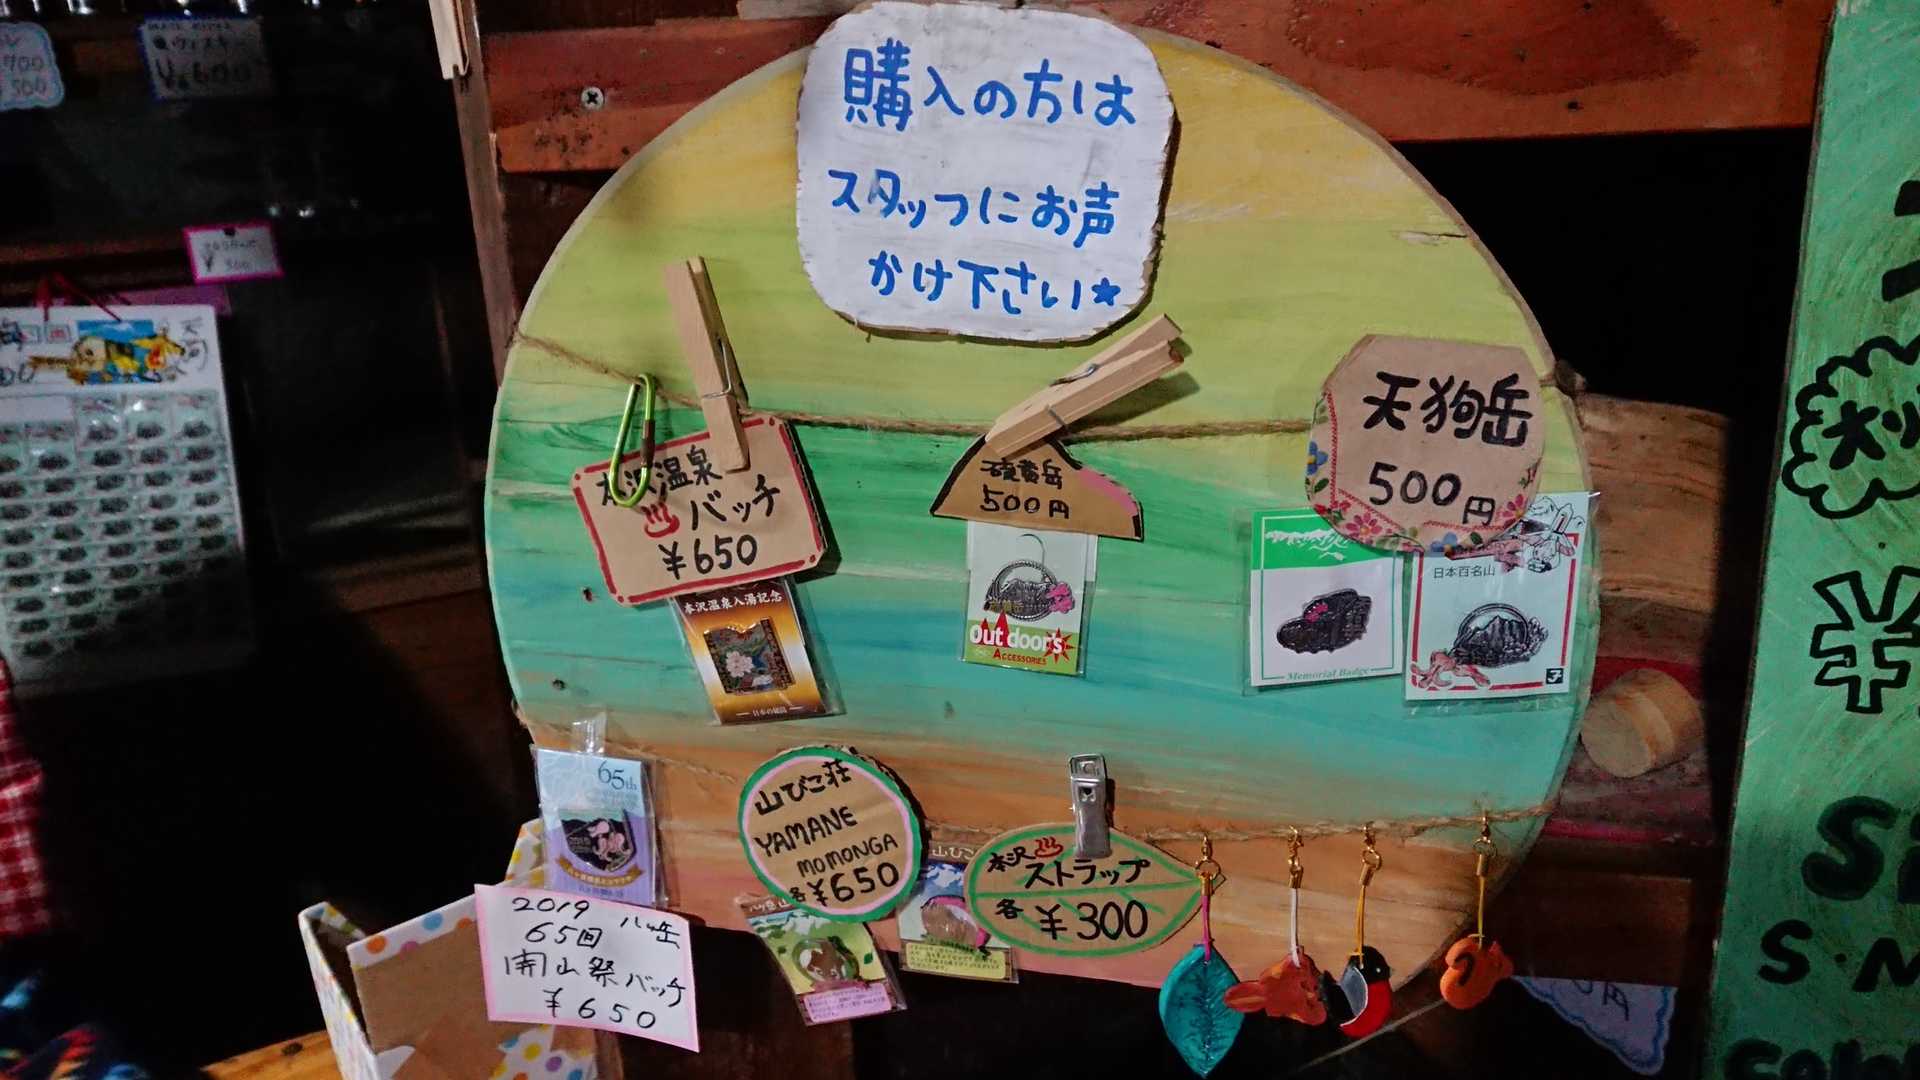 購入の方は
スタッフにお声
かけ下さい★
ウィスキー
¥600
700
500
本沢温泉
♨バッチ
¥650
本沢温泉入湯記念
日本の秘湯
硫黄岳
500円
Outdoor's
ACCESSORIES
天狗岳
500円
Memorial Badge
日本百名山
65th
2019 八ヶ岳
65回
開山祭バッチ
¥650
山びこ荘
YAMANE
MOMONGA
各¥650
本沢♨
ストラップ
各¥300
¥
S.M